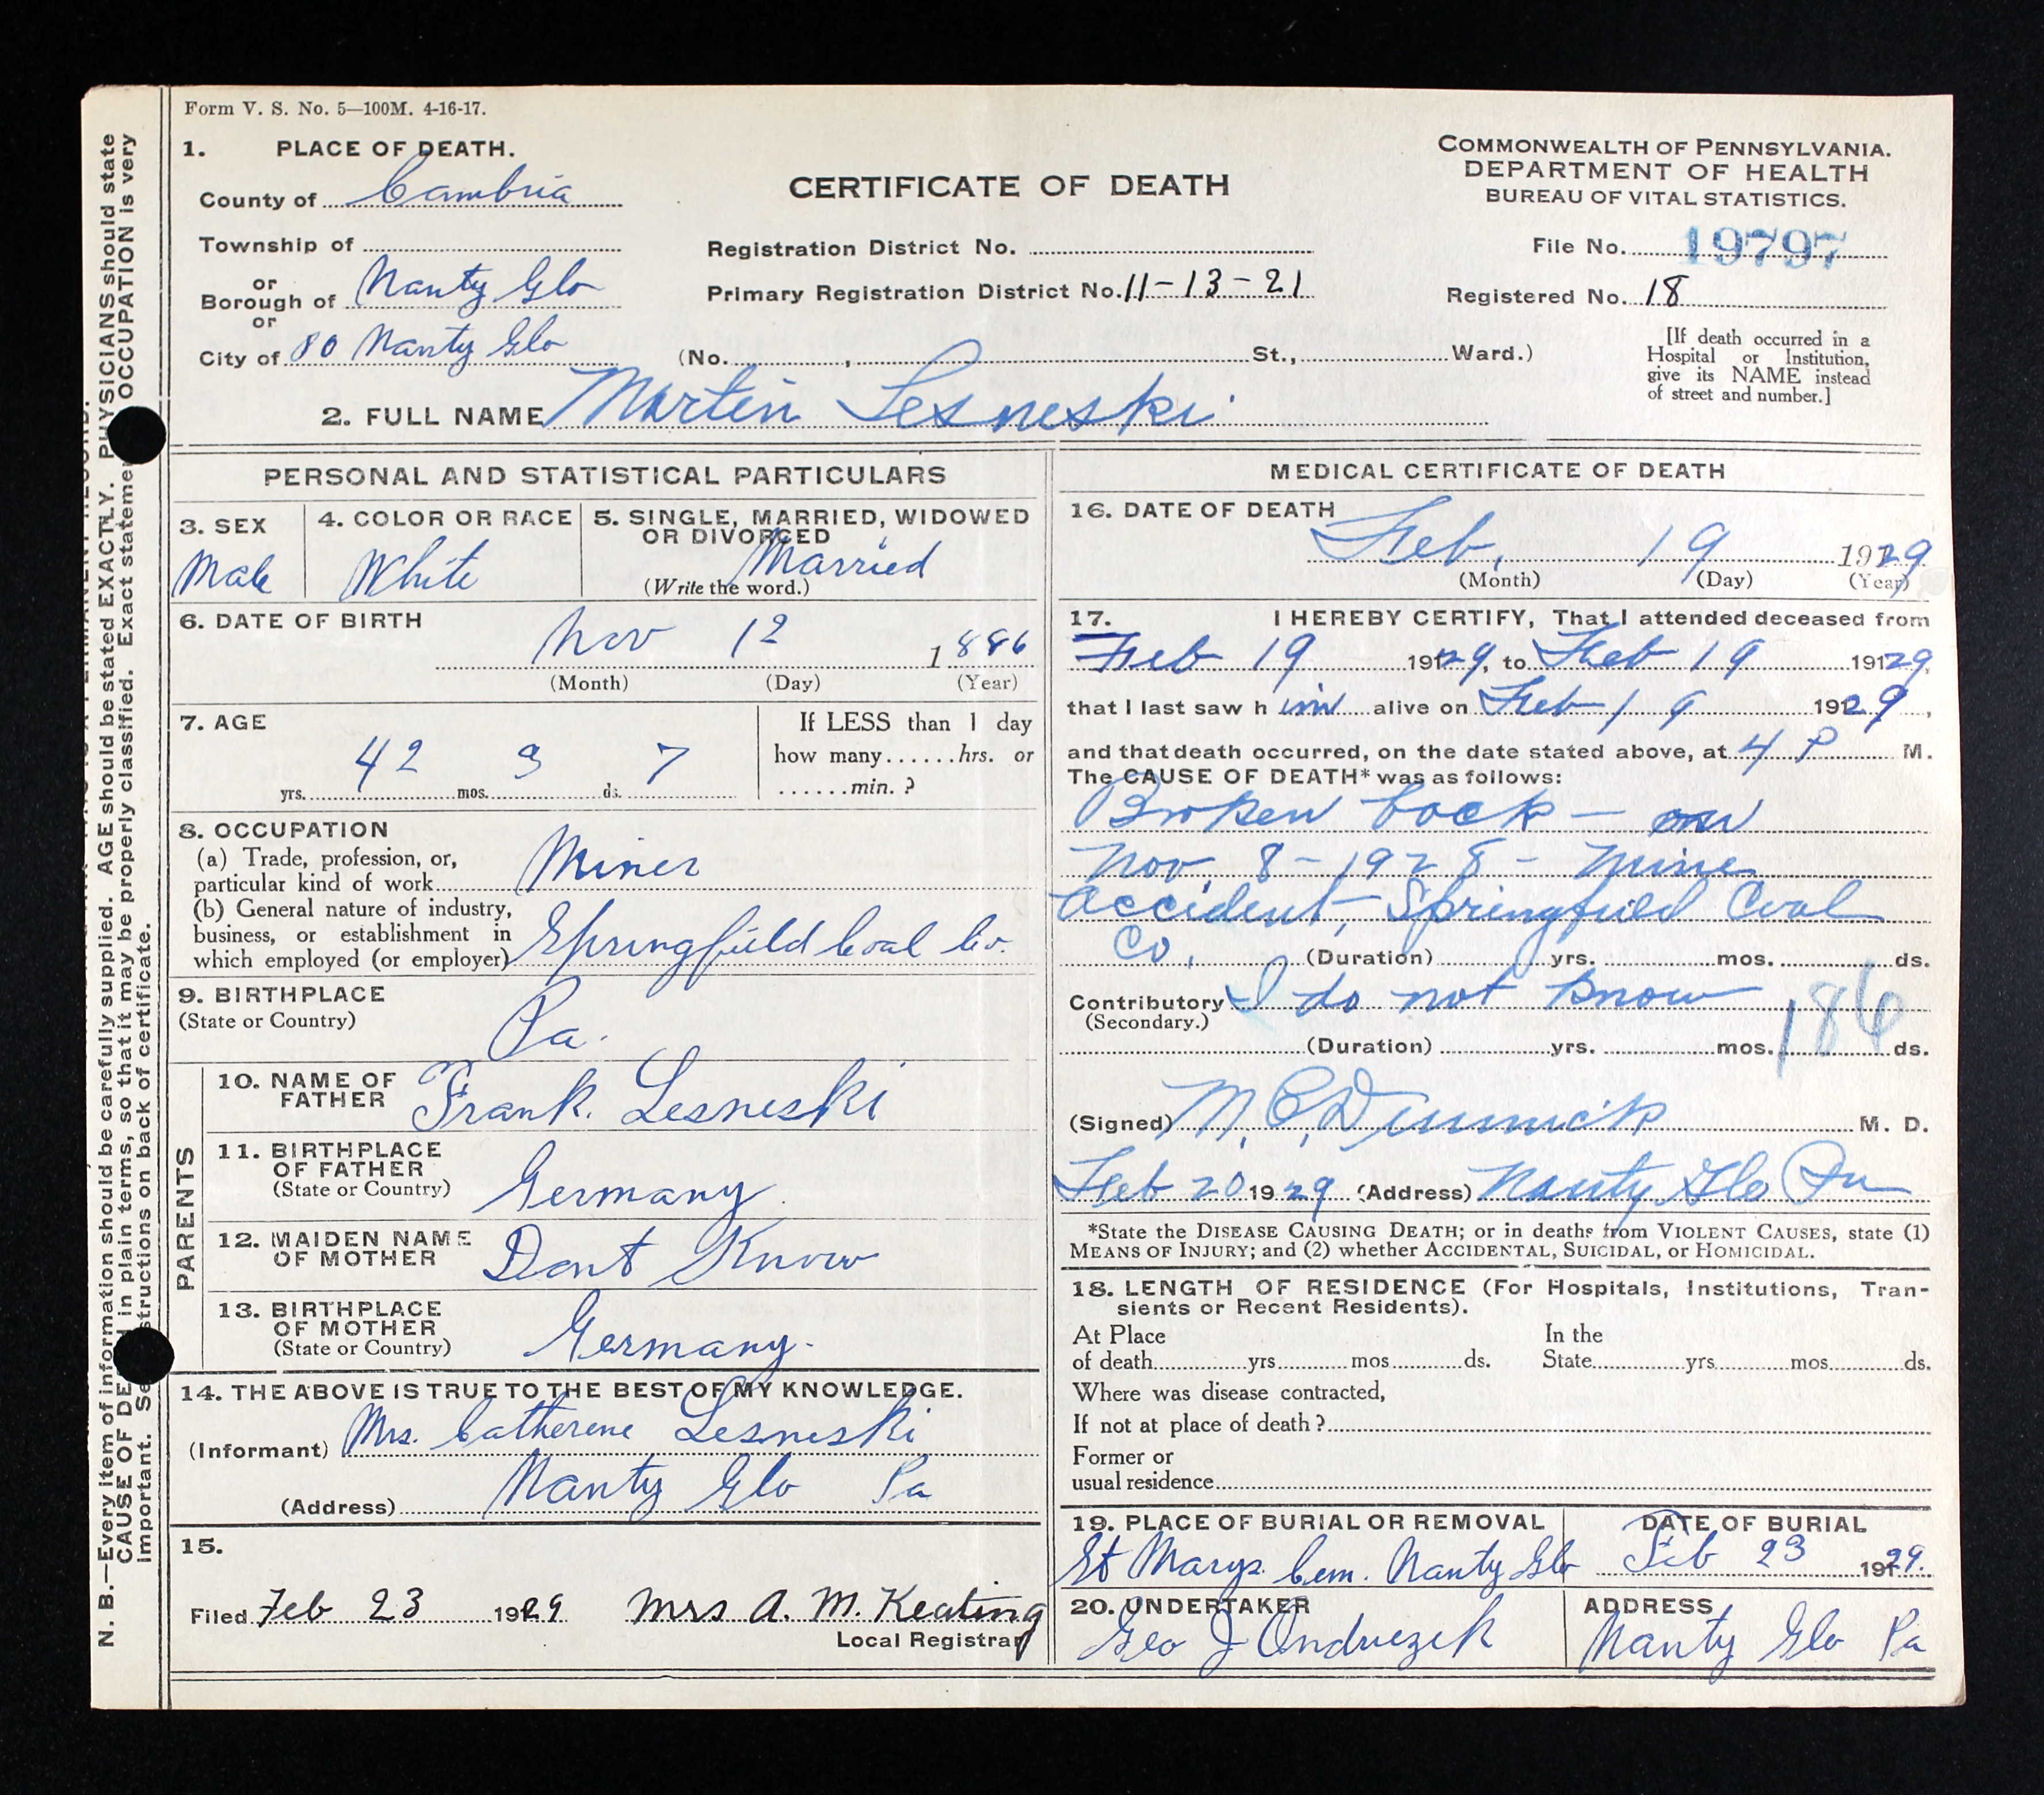 Form V. S. No. 5—100M. 4-16-17.
1. PLACE OF DEATH.
County of Cambria
Township of
or
Borough of Nanty Glo
or
City of 80 Nanty Glo
CERTIFICATE OF DEATH
Registration District No.
Primary Registration District No. 11-13-21
(No. , St., Ward.)
COMMONWEALTH OF PENNSYLVANIA.
DEPARTMENT OF HEALTH
BUREAU OF VITAL STATISTICS.
File No. 19797
Registered No. 18
[If death occurred in a
Hospital or Institution,
give its NAME instead
of street and number.]
2. FULL NAME Martin Lesneski
PERSONAL AND STATISTICAL PARTICULARS
3. SEX
Male
4. COLOR OR RACE
White
5. SINGLE, MARRIED, WIDOWED
OR DIVORCED
Married
(Write the word.)
6. DATE OF BIRTH
Nov 12 1886
(Month) (Day) (Year)
7. AGE
42 3 7
yrs. mos. ds.
If LESS than 1 day
how many......hrs. or
......min. ?
8. OCCUPATION
(a) Trade, profession, or,
particular kind of work Miner
(b) General nature of industry,
business, or establishment in
which employed (or employer) Springfield Coal Co.
9. BIRTHPLACE
(State or Country)
Pa.
PARENTS
10. NAME OF
FATHER Frank. Lesneski
11. BIRTHPLACE
OF FATHER
(State or Country) Germany
12. MAIDEN NAME
OF MOTHER Dont Know
13. BIRTHPLACE
OF MOTHER
(State or Country) Germany.
14. THE ABOVE IS TRUE TO THE BEST OF MY KNOWLEDGE.
(Informant) Mrs. Catherene Lesneski
(Address) Nanty Glo Pa
15.
Filed Feb 23 1929 Mrs A. M. Keating
Local Registrar
MEDICAL CERTIFICATE OF DEATH
16. DATE OF DEATH
Feb, 19 1929
(Month) (Day) (Year)
17. I HEREBY CERTIFY, That I attended deceased from
Feb 19 1929, to Feb 19 1929,
that I last saw him alive on Feb 19 1929,
and that death occurred, on the date stated above, at 4 P M.
The CAUSE OF DEATH* was as follows:
Broken back - on
Nov. 8-1928 - Mine
accident, Springfield Coal
Co, (Duration) yrs. mos. ds.
Contributory I do not know
(Secondary.) 186
(Duration) yrs. mos. ds.
(Signed) M. C. Dimmick M. D.
Feb 20 1929 (Address) Nanty Glo Pa
*State the DISEASE CAUSING DEATH; or in deaths from VIOLENT CAUSES, state (1)
MEANS OF INJURY; and (2) whether ACCIDENTAL, SUICIDAL, or HOMICIDAL.
18. LENGTH OF RESIDENCE (For Hospitals, Institutions, Tran-
sients or Recent Residents).
At Place
of death yrs mos ds.
In the
State yrs mos ds.
Where was disease contracted,
If not at place of death ?
Former or
usual residence
19. PLACE OF BURIAL OR REMOVAL
St Marys. Cem. Nanty Glo
DATE OF BURIAL
Feb 23 1929.
20. UNDERTAKER
Geo J Ondrezek
ADDRESS
Nanty Glo Pa
N. B.—Every item of information should be carefully supplied. AGE should be stated EXACTLY. PHYSICIANS should state
CAUSE OF DE in plain terms, so that it may be properly classified. Exact stateme OCCUPATION is very
important. Se structions on back of certificate.